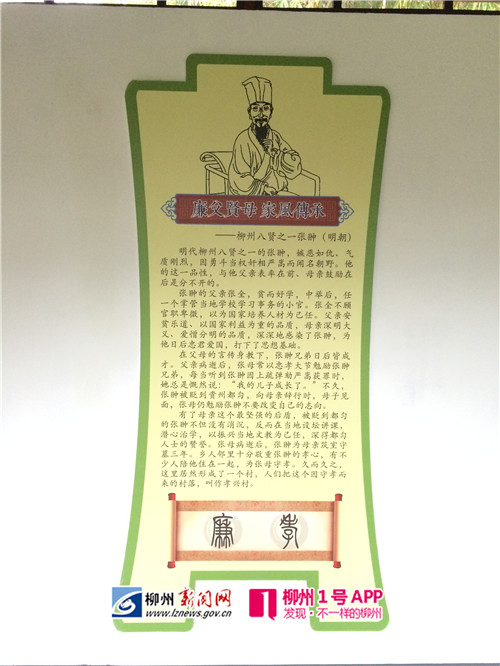 廉父賢母 家風傳承
——柳州八贤之一张翀（明朝）
明代柳州八贤之一的张翀，嫉恶如仇、气
质刚烈，因勇斗当权奸相严嵩而闻名朝野。他
的这一品性，与他父亲表率在前、母亲鼓励在
后是分不开的。
张翀的父亲张全，贫而好学，中举后，任
一个掌管当地学校学习事务的小官。张全不顾
官职卑微，以为国家培养人材为己任。父亲安
贫乐道、以国家利益为重的品质，母亲深明大
义、爱憎分明的品质，深深地感染了张翀，为
他日后忠君爱国，打下了思想基础。
在父母的言传身教下，张翀兄弟日后皆成
才。父亲病逝后，张母常以忠孝大节勉励张翀
兄弟，每当听到张翀因上疏弹劾严嵩获罪时，
她总是慨然说：“我的儿子成长了。”不久，
张翀被贬到贵州都匀，向母亲辞行时，母子见
面，张母仍勉励张翀不要改变自己的志向。
有了母亲这个最坚强的后盾，被贬到都匀
的张翀不但没有消沉，反而在当地设坛讲课，
潜心治学，以振兴当地文教为己任，深得都匀
人士的赞誉。张母病逝后，张翀为母亲筑室守
墓三年。乡人邻里十分敬重张翀的孝心，有不
少人陪他住在一起，为张母守孝。久而久之，
这里居然形成了一个村，人们把这个因守孝而
来的村落，叫作孝兴村。
廉 孝
柳州新闻网
www.lznews.gov.cn
柳州1号APP
发现·不一样的柳州